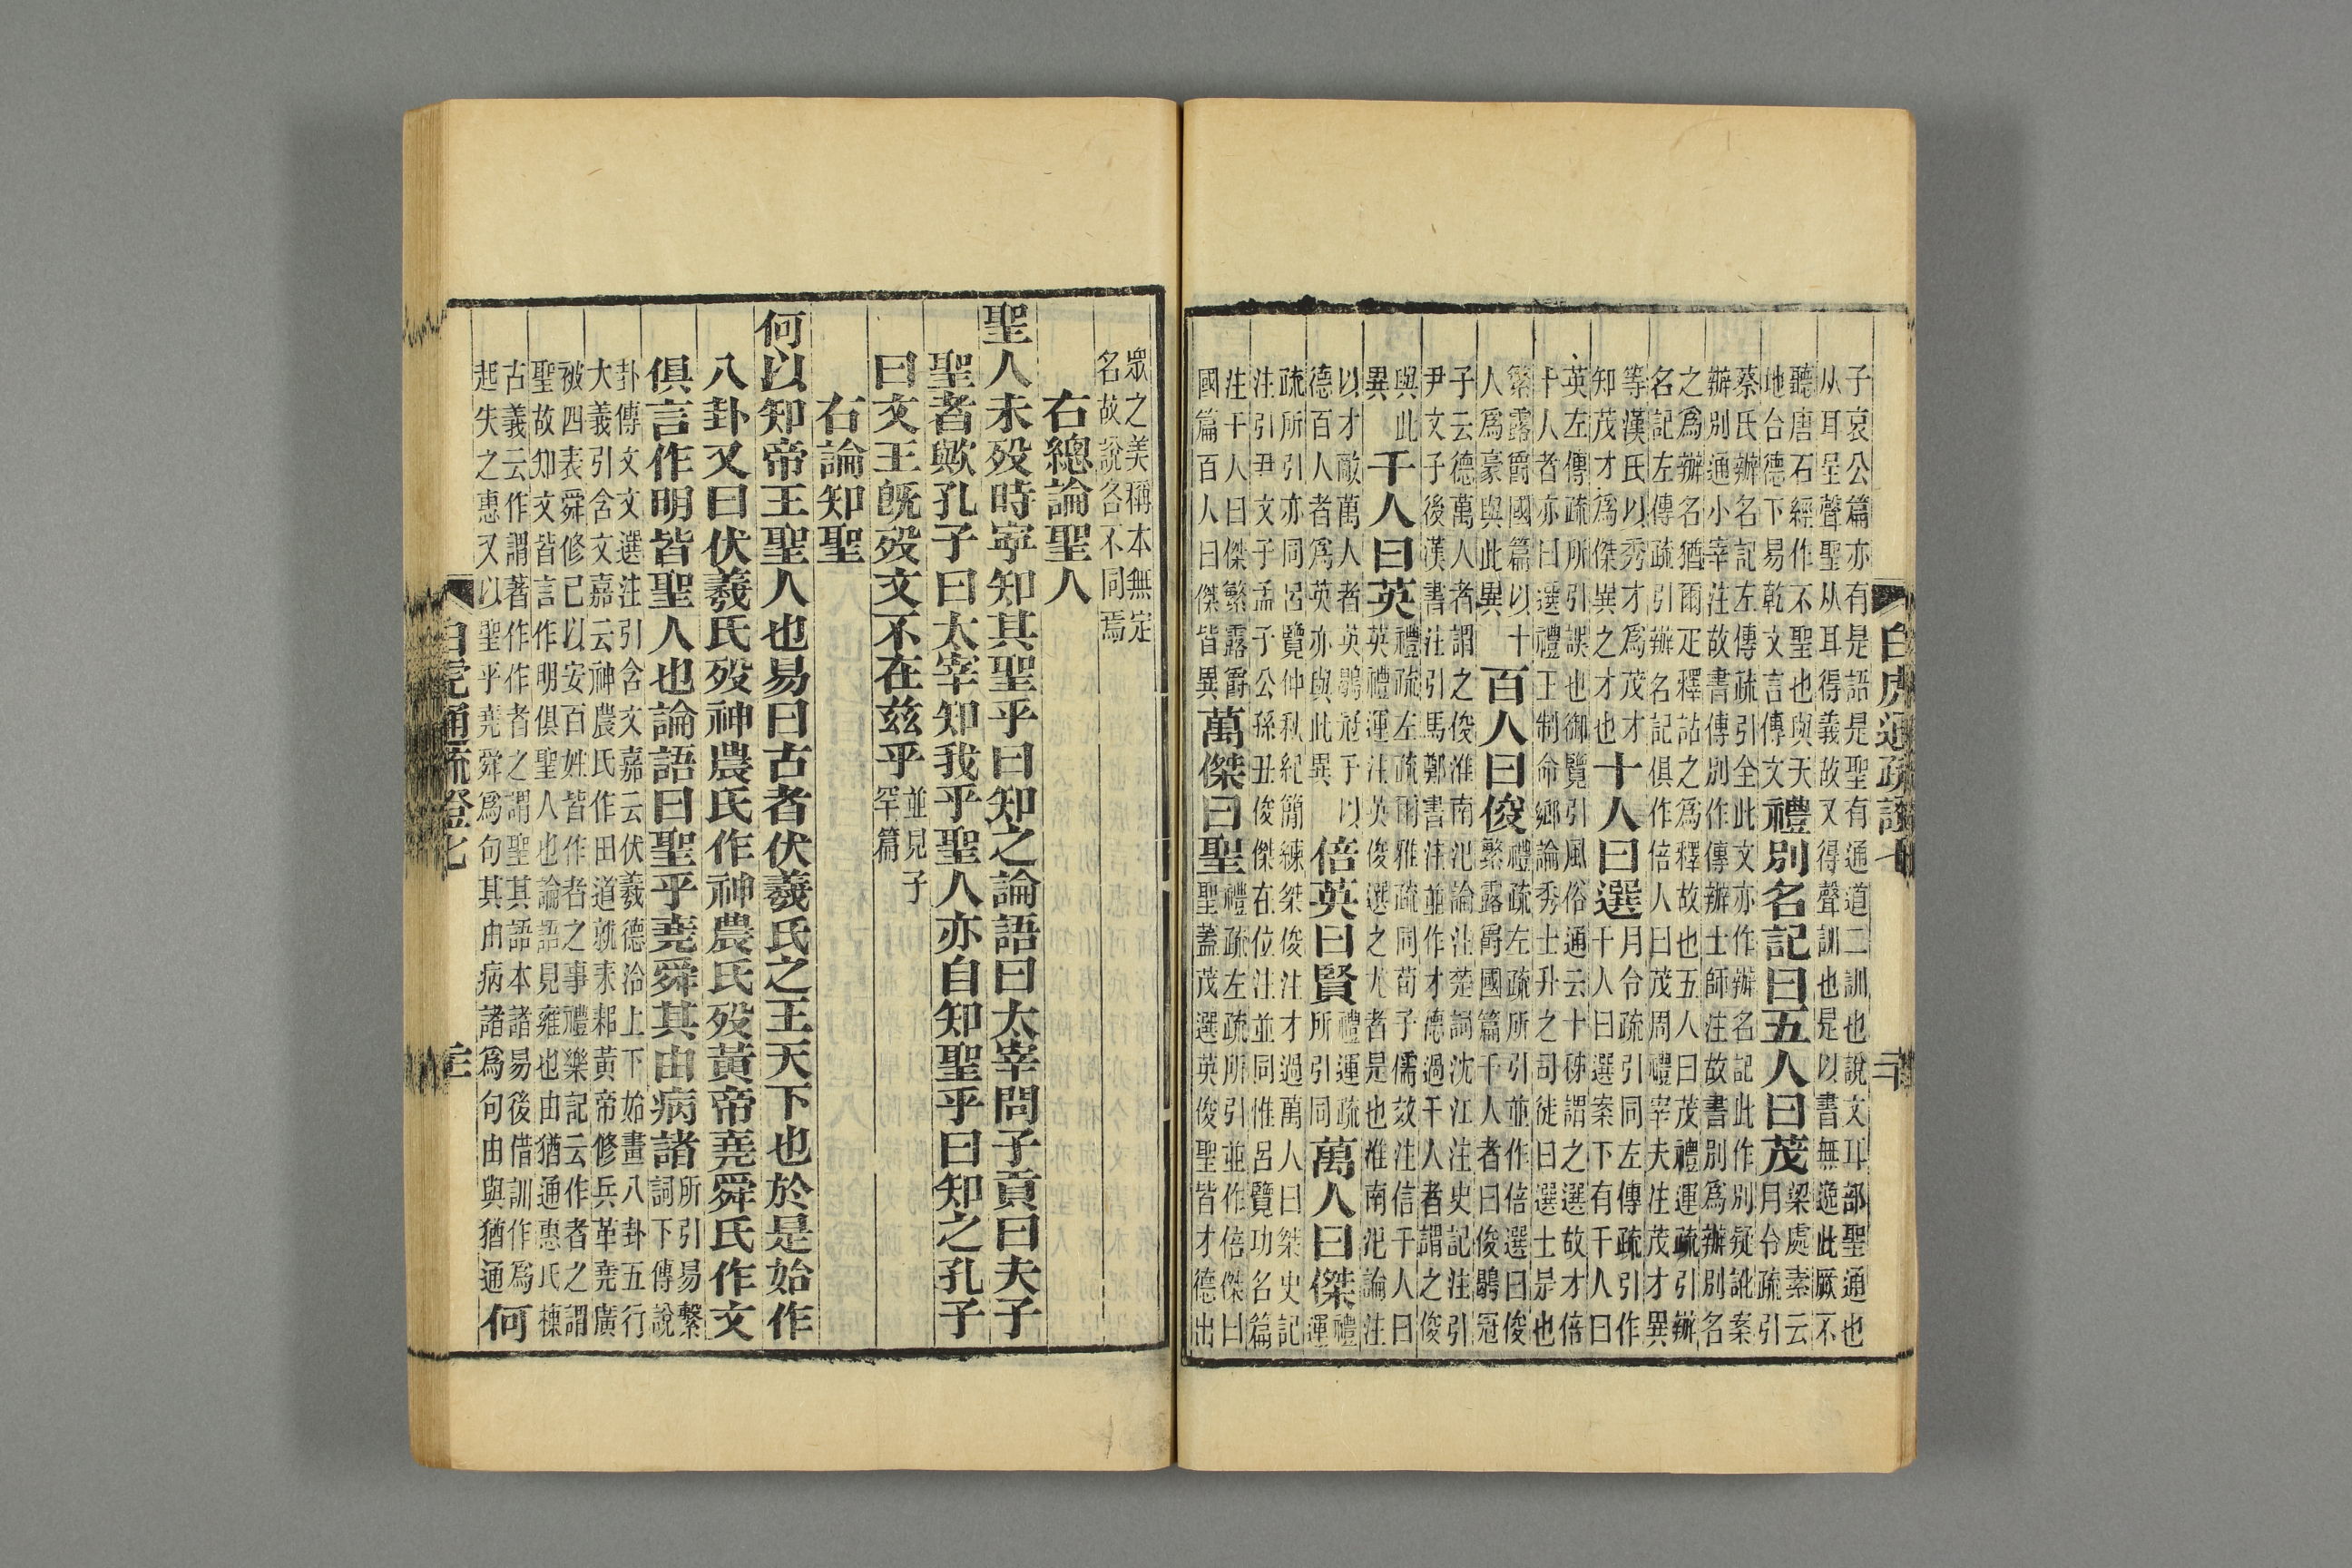 子哀公篇亦有是語是聖有通道二訓也說文耳部聖通也
从耳呈聲聖从耳得義故又得聲訓也是以書無逸此厥不
聽唐石經作不聖也與天
地台德下易乾文言傳文
禮別名記曰五人曰茂
梁處素云
月令疏引
蔡氏辯名記左傳疏引全此文亦作辦名記此作別疑訛案
辦別通小宰注故書傳別作傳辦士師注故書別為辦辦別名
之為辦名猶爾疋釋詁之為釋故也五人曰茂禮運疏引辦
名記左傳疏引辦名記俱作倍人曰茂周禮宰夫注茂才異
等漢氏以秀才為茂才
知茂才為傑異之才也
十人曰選
月令疏引同左傳疏引作
千人曰選案下有千人曰
英左傳疏所引誤也御覽引風俗通云十稊謂之選故才倍
千人者亦曰選禮王制命鄉論秀士升之司徒曰選士是也
繁露爵國篇以十
人為豪與此異
百人曰俊
禮疏左疏所引並作倍選曰俊
繁露爵國篇千人者曰俊鶡冠
子云德萬人者謂之俊淮南氾論注楚詞沈江注史記注引
尹文子後漢書注引馬鄭書注並作才德過千人者謂之俊
與此
異
千人曰英
禮疏左疏爾雅疏同荀子儒效注信于人曰
英禮運注英俊選之尤者是也淮南氾論注
以才敵萬人者英鶡冠子以
德百人者為英亦與此異
倍英曰賢
禮運疏
所引同
萬人曰傑
禮
運
疏所引亦同呂覽仲秋紀簡練桀俊注才過萬人曰桀史記
注引尹文子孟子公孫丑俊傑在位注並同惟呂覽功名篇
注千人曰傑繁露爵
國篇百人曰傑皆異
萬傑曰聖
禮疏左疏所引並作倍傑曰
聖蓋茂選英俊聖皆才德出
白虎通疏證七
二十
眾之美稱本無定
名故說各不同焉
右總論聖人
聖人未歿時寧知其聖乎曰知之論語曰太宰問子貢曰夫子
聖者歟孔子曰太宰知我乎聖人亦自知聖乎曰知之孔子
曰文王旣歿文不在茲乎
並見子
罕篇
右論知聖
何以知帝王聖人也易曰古者伏羲氏之王天下也於是始作
八卦又曰伏羲氏歿神農氏作神農氏歿黃帝堯舜氏作文
俱言作明皆聖人也論語曰聖乎堯舜其由病諸
所引易繫
詞下傳說
卦傳文文選注引含文嘉云伏羲德洽上下始畫八卦五行
大義引含文嘉云神農氏作田道就耒耜黃帝修兵革堯廣
被四表舜修己以安百姓皆作者之事禮樂記云作者之謂
聖故知文皆言作明俱聖人也論語見雍也由猶通惠氏棟
古義云作謂著作作者之謂聖其語本諸易後借訓作為
起失之惠又以聖乎堯舜為句其由病諸為句由與猶通
何
白虎通疏證七